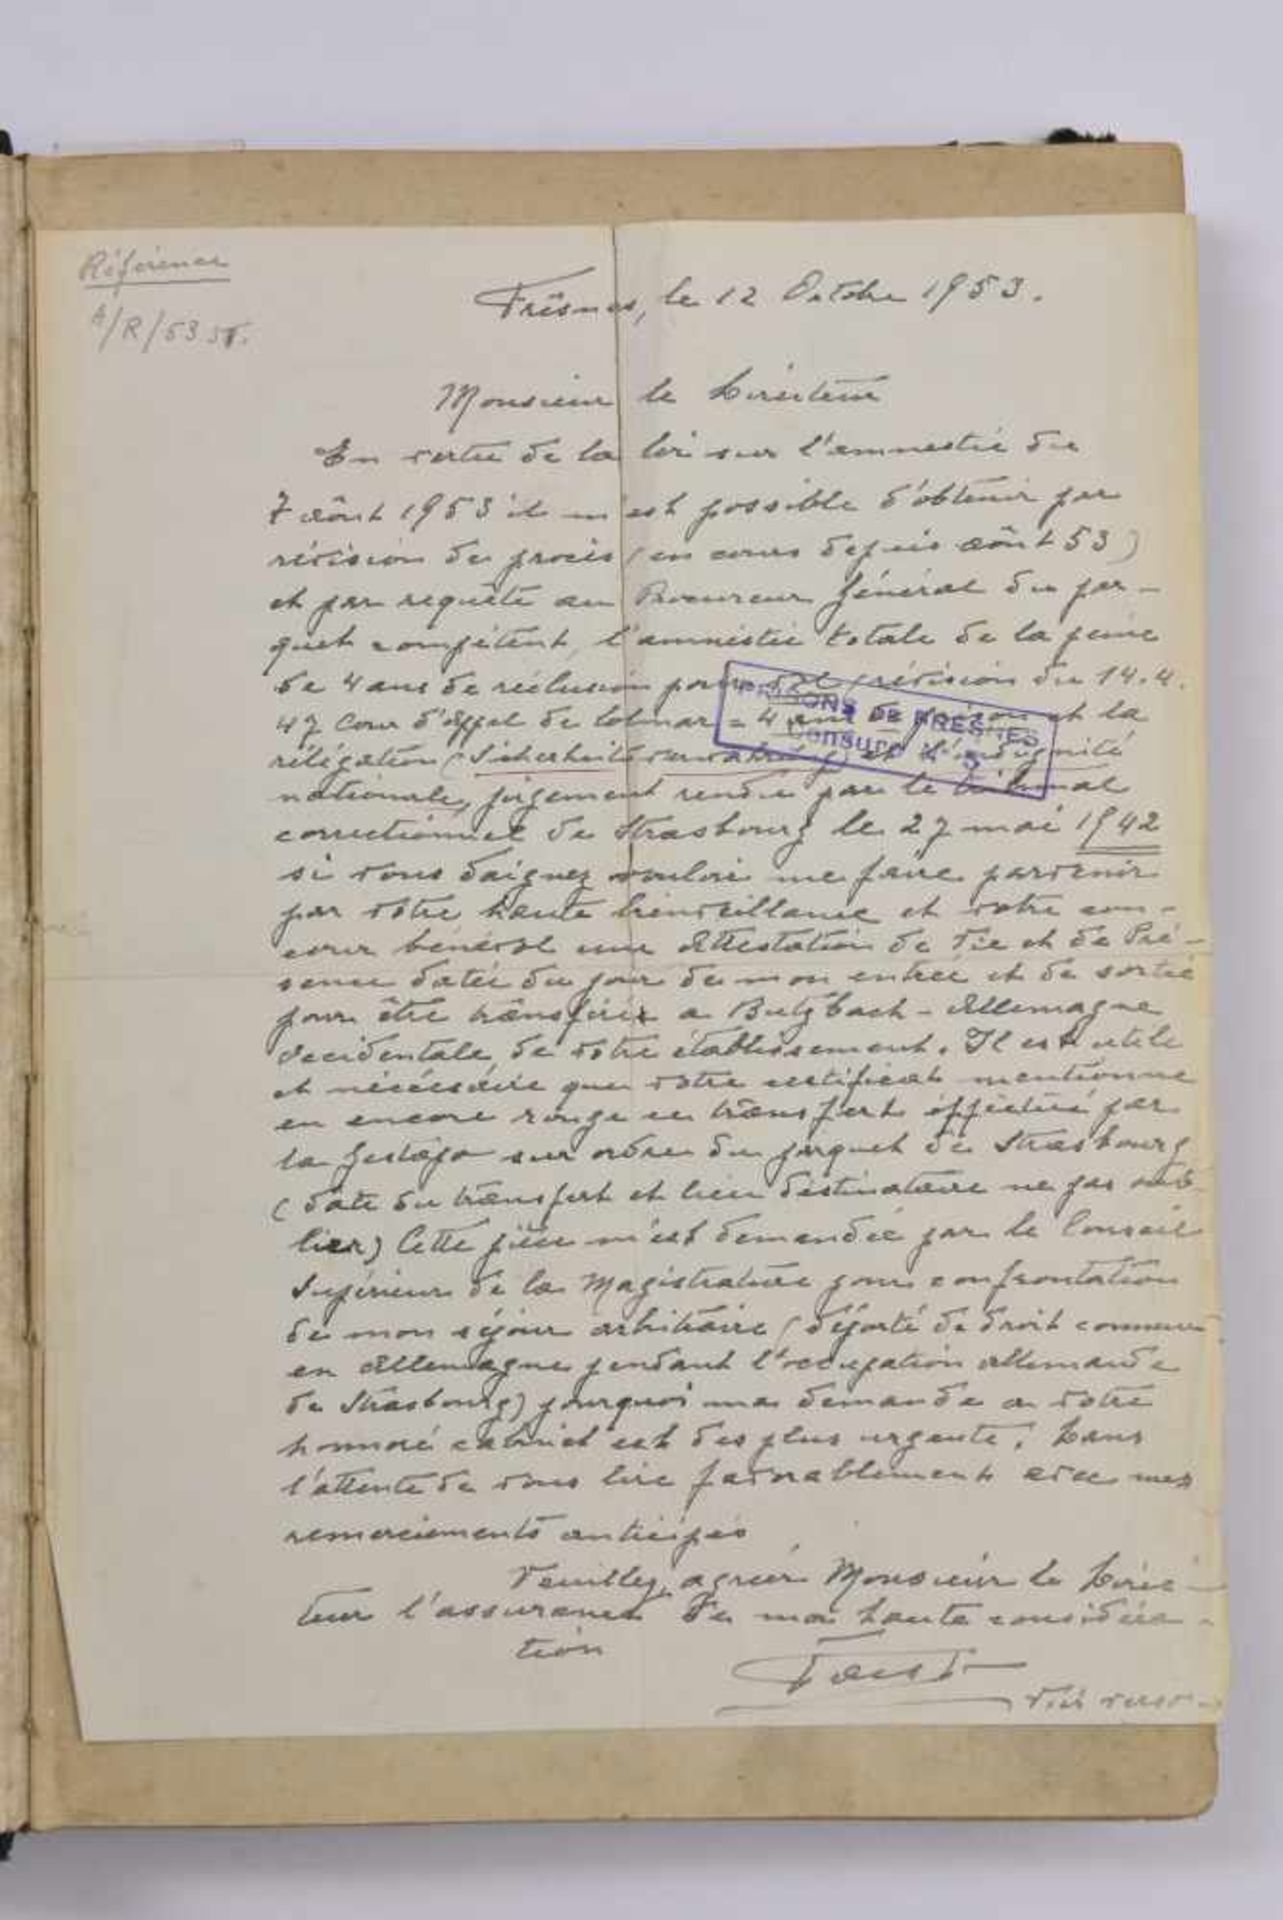 Référence
A/R/53 ST.
Frêsnes, le 12 Octobre 1953.
Monsieur le Directeur
En vertu de la loi sur l'amnestie du
7 août 1953 il m'est possible d'obtenir par
révision de procès (en cours depuis août 53)
et par requête au Procureur Général du par-
quet compétent, l'amnéstie totale de la peine
de 4 ans de réclusion pour (révision du 14.4.
47 Cour d'Appel de Colmar = 4 ans de prison et la
rélégation (Sicherheitsverwahrung) et l'indignité
PRISONS DE FRESNES
Censure N° 5
nationale, jugement rendu par le tribunal
correctionnel de Strasbourg le 27 mai 1942
si vous daignez vouloir me faire parvenir
par votre haute bienveillance et votre con-
cour bénévol une Attestation de Vie et de Pré-
sence datée du jour de mon entrée et de sortie
pour être trânsférér a Butzbach - Allemagne
occidentale de votre établissement. Il est utile
et nécéssaire que votre certificat mentionne
en encore rouge le trânsfert éffectué par
la Gestapo sur ordre du parquet de Strasbourg
(date du trânsfert et lieu destinataire ne pas oub-
lier) Cette pièce m'est demandée par le Conseil
Supérieur de la Magistrature pour confrontation
de mon séjour arbitraire (déporté de droit commun
en Allemagne pendant l'occupation allemande
de Strasbourg) pourquoi ma demande a votre
honnoré cabinet est des plus urgente. Dans
l'attente de vous lire favorablement avec mes
remerciements anticipés
Veuillez, agréer Monsieur le Direc-
teur l'assurance de ma haute considéra-
tion
Faust
Voir verso -